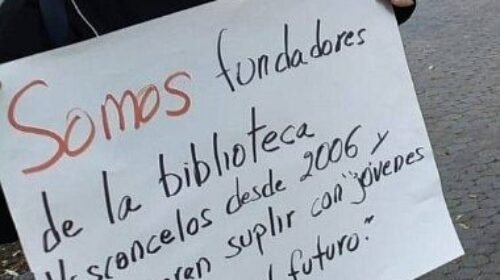 Somos fundadores
de la biblioteca
Vasconcelos desde 2006 y
suplir con "jóvenes
futuro."